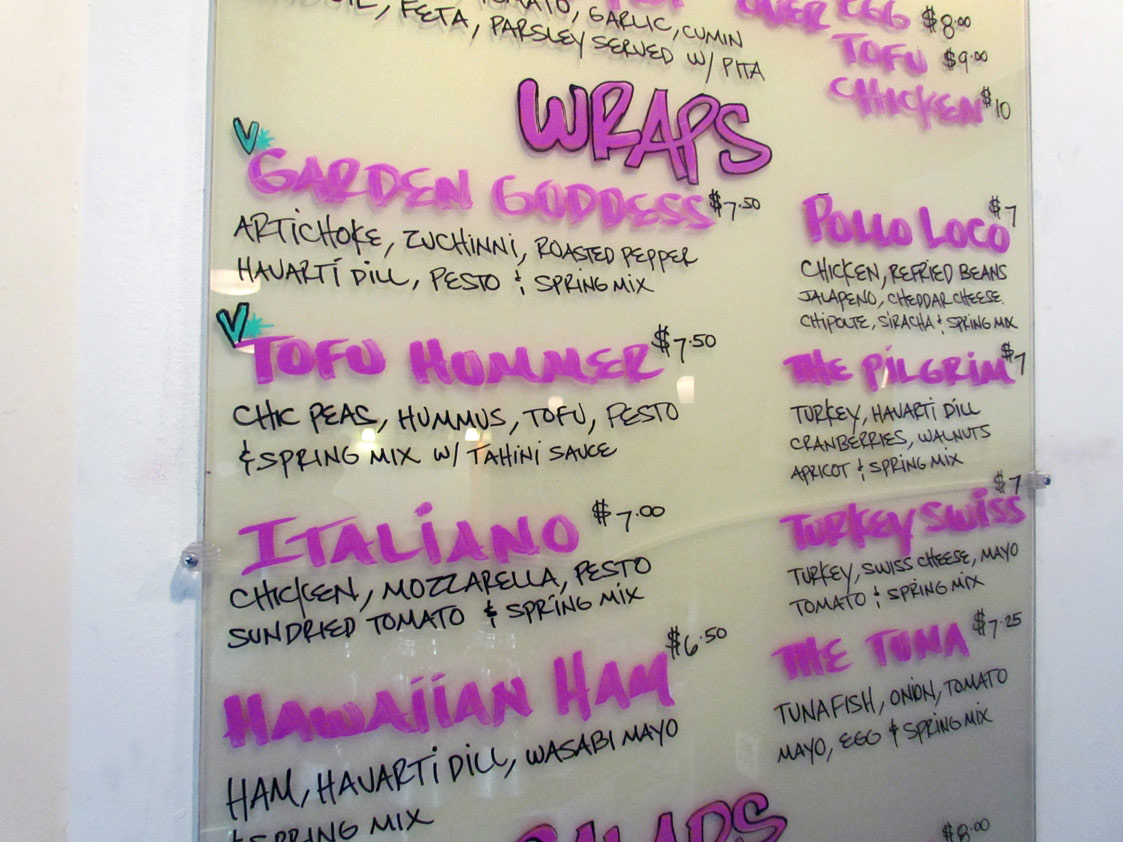 FETA, TOMATO, GARLIC, CUMIN
PARSLEY SERVED W/ PITA
OVER EGG $8.00
TOFU $9.00
CHICKEN $10
WRAPS
V GARDEN GODDESS $7.50
ARTICHOKE, ZUCHINNI, ROASTED PEPPER
HAVARTI DILL, PESTO & SPRING MIX
V TOFU HUMMER $7.50
CHIC PEAS, HUMMUS, TOFU, PESTO
& SPRING MIX W/ TAHINI SAUCE
ITALIANO $7.00
CHICKEN, MOZZARELLA, PESTO
SUNDRIED TOMATO & SPRING MIX
HAWAIIAN HAM $6.50
HAM, HAVARTI DILL, WASABI MAYO
& SPRING MIX
POLLO LOCO $7
CHICKEN, REFRIED BEANS
JALAPENO, CHEDDAR CHEESE,
CHIPOLTE, SIRACHA & SPRING MIX
THE PILGRIM $7
TURKEY, HAVARTI DILL
CRANBERRIES, WALNUTS
APRICOT & SPRING MIX
TURKEY SWISS $7
TURKEY, SWISS CHEESE, MAYO
TOMATO & SPRING MIX
THE TUNA $7.25
TUNAFISH, ONION, TOMATO
MAYO, EGG & SPRING MIX
SALADS
$8.00